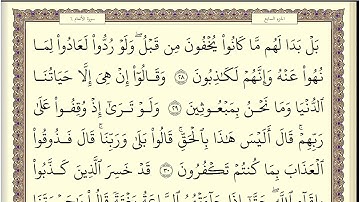 الجزء السابع
سورة الأنعام
بَلْ بَدَا لَهُم مَّا كَانُوا۟ يُخْفُونَ مِن قَبْلُ ۖ وَلَوْ رُدُّوا۟ لَعَادُوا۟ لِمَا
نُهُوا۟ عَنْهُ وَإِنَّهُمْ لَكَـٰذِبُونَ ٢٨ وَقَالُوٓا۟ إِنْ هِىَ إِلَّا حَيَاتُنَا
ٱلدُّنْيَا وَمَا نَحْنُ بِمَبْعُوثِينَ ٢٩ وَلَوْ تَرَىٰٓ إِذْ وُقِفُوا۟ عَلَىٰ
رَبِّهِمْ ۚ قَالَ أَلَيْسَ هَـٰذَا بِٱلْحَقِّ ۚ قَالُوا۟ بَلَىٰ وَرَبِّنَا ۚ قَالَ فَذُوقُوا۟
ٱلْعَذَابَ بِمَا كُنتُمْ تَكْفُرُونَ ٣٠ قَدْ خَسِرَ ٱلَّذِينَ كَذَّبُوا۟
بِلِقَآءِ ٱللَّهِ ۖ حَتَّىٰٓ إِذَا جَآءَتْهُمُ ٱلسَّاعَةُ بَغْتَةً قَالُوا۟ يَـٰحَسْرَتَنَا